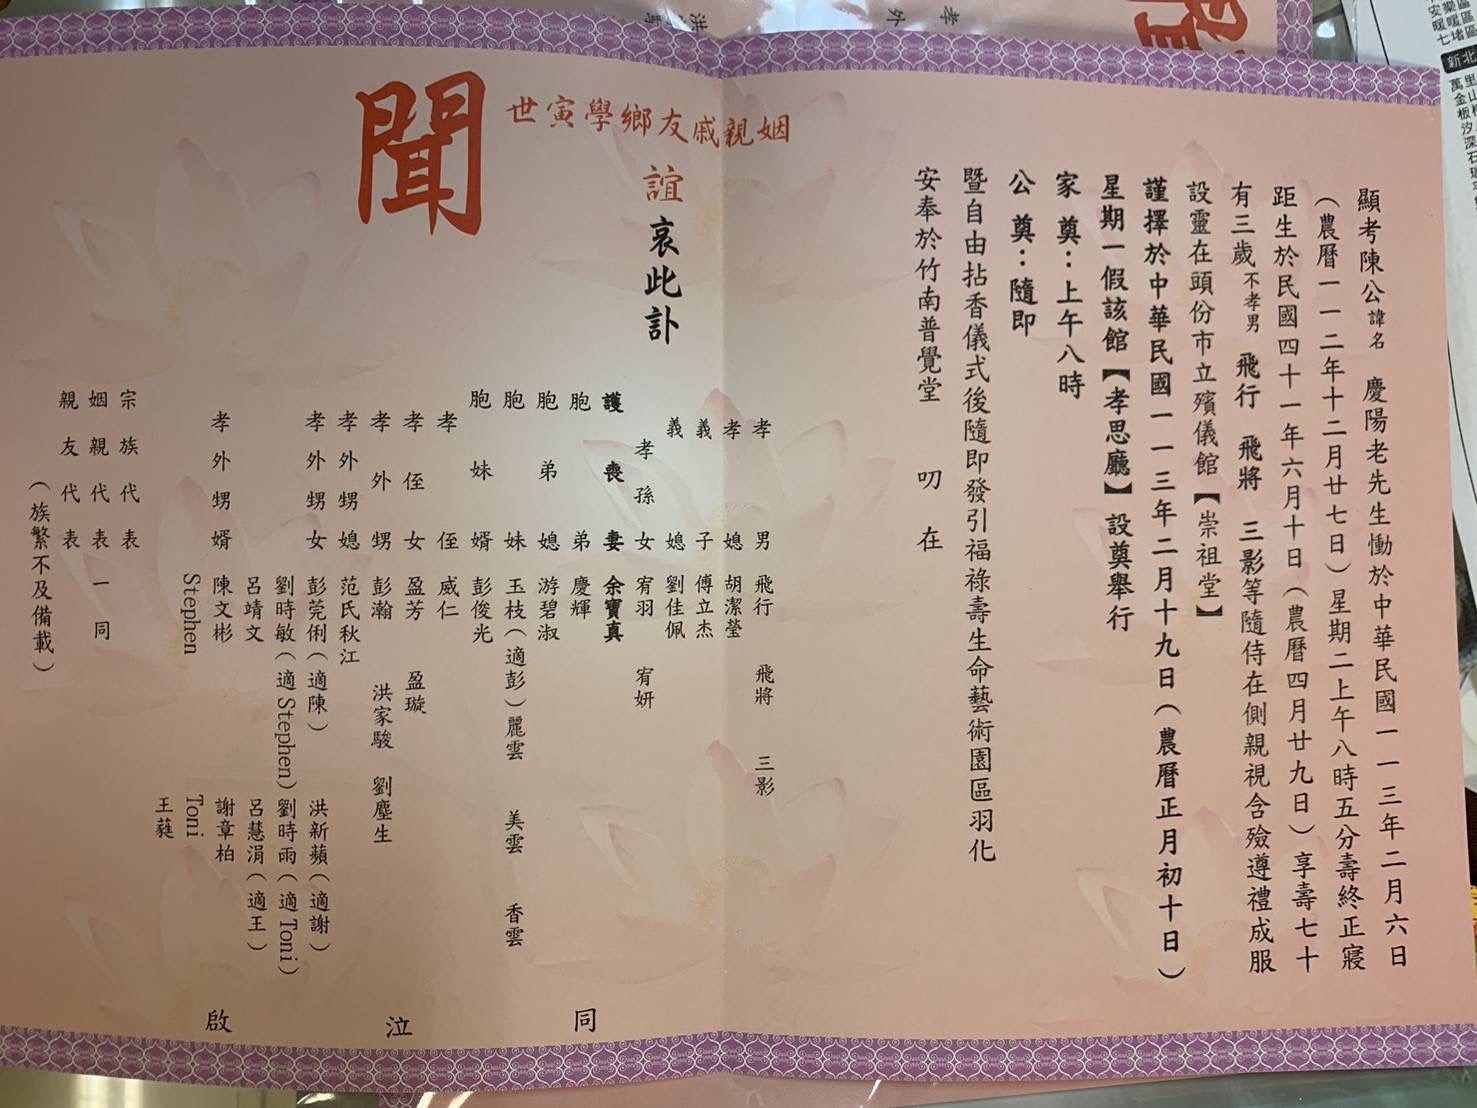 顯考陳公諱名 慶陽老先生慟於中華民國一一三年二月六日
（農曆一一二年十二月廿七日）星期二上午八時五分壽終正寢
距生於民國四十一年六月十日（農曆四月廿九日）享壽七十
有三歲不孝男 飛行 飛將 三影等隨侍在側親視含殮遵禮成服
設靈在頭份市立殯儀館【崇祖堂】
謹擇於中華民國一一三年二月十九日（農曆正月初十日）
星期一假該館【孝思廳】設奠舉行
家 奠：上午八時
公 奠：隨即
暨自由拈香儀式後隨即發引福祿壽生命藝術園區羽化
安奉於竹南普覺堂 叨 在
姻親戚友鄉學寅世
誼哀此訃
聞
孝男 飛行 飛將 三影
孝媳 胡潔瑩
義子 傅立杰
義媳 劉佳佩
孝孫女 宥羽 宥妍
護喪妻 余寶真
胞弟 慶輝
胞弟媳 游碧淑
胞妹 玉枝（適彭）麗雲 美雲 香雲
胞妹婿 彭俊光
孝侄 威仁
孝侄女 盈芳 盈璇
孝外甥 彭瀚 洪家駿 劉塵生
孝外甥媳 范氏秋江
孝外甥女 彭莞俐（適陳） 洪新蘋（適謝）
劉時敏（適 Stephen） 劉時雨（適 Toni）
呂靖文 呂慧涓（適王）
孝外甥婿 陳文彬 謝章柏
Stephen Toni
王蕤
宗族代表
姻親代表一同
親友代表
（族繁不及備載）
同 泣 啟
孝
外
洪
新北
安樂區
暖暖區
七堵區
萬里
金山
板
汐
深
石